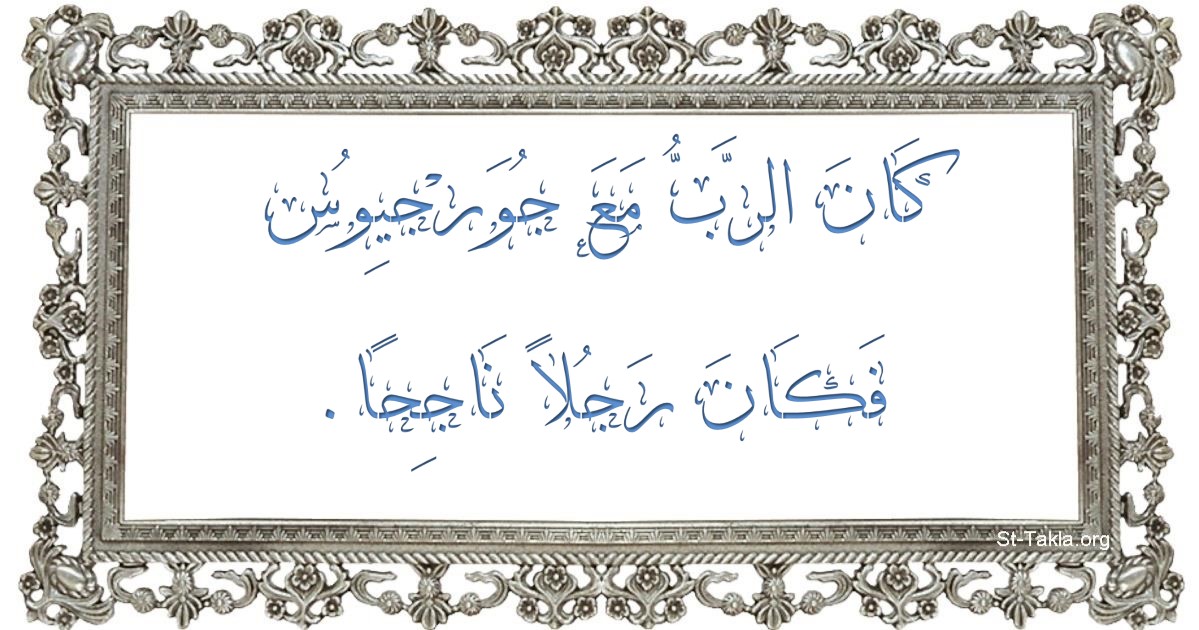 كَانَ الرَّبُّ مَعَ جُوَرْجِيِوُس
فَكَانَ رَجُلاً نَاجِحًا .
St-Takla.org